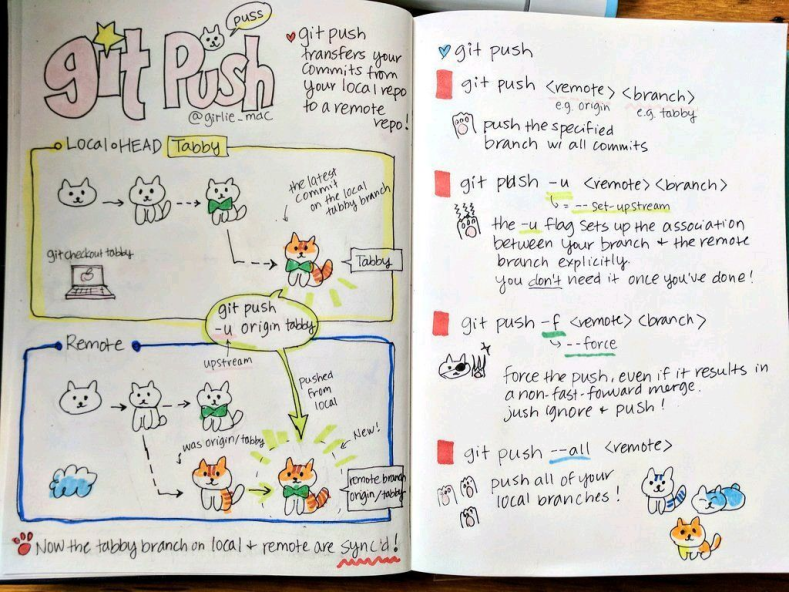 git Push
puss
@girlie_mac
git push
transfers your
commits from
your local repo
to a remote
repo!
Local • HEAD Tabby
the latest
commit
on the local
tabby branch
git checkout tabby
Tabby
git push
-u origin tabby
upstream
Remote
pushed
from
local
was origin/tabby
New!
remote branch
origin/tabby
Now the tabby branch on local + remote are sync'd!
git push
git push <remote> <branch>
e.g. origin e.g. tabby
push the specified
branch w/ all commits
git push -u <remote> <branch>
= --set-upstream
the -u flag sets up the association
between your branch + the remote
branch explicitly.
you don't need it once you've done!
git push -f <remote> <branch>
--force
force the push, even if it results in
a non-fast-forward merge.
just ignore + push!
git push --all <remote>
push all of your
local branches!